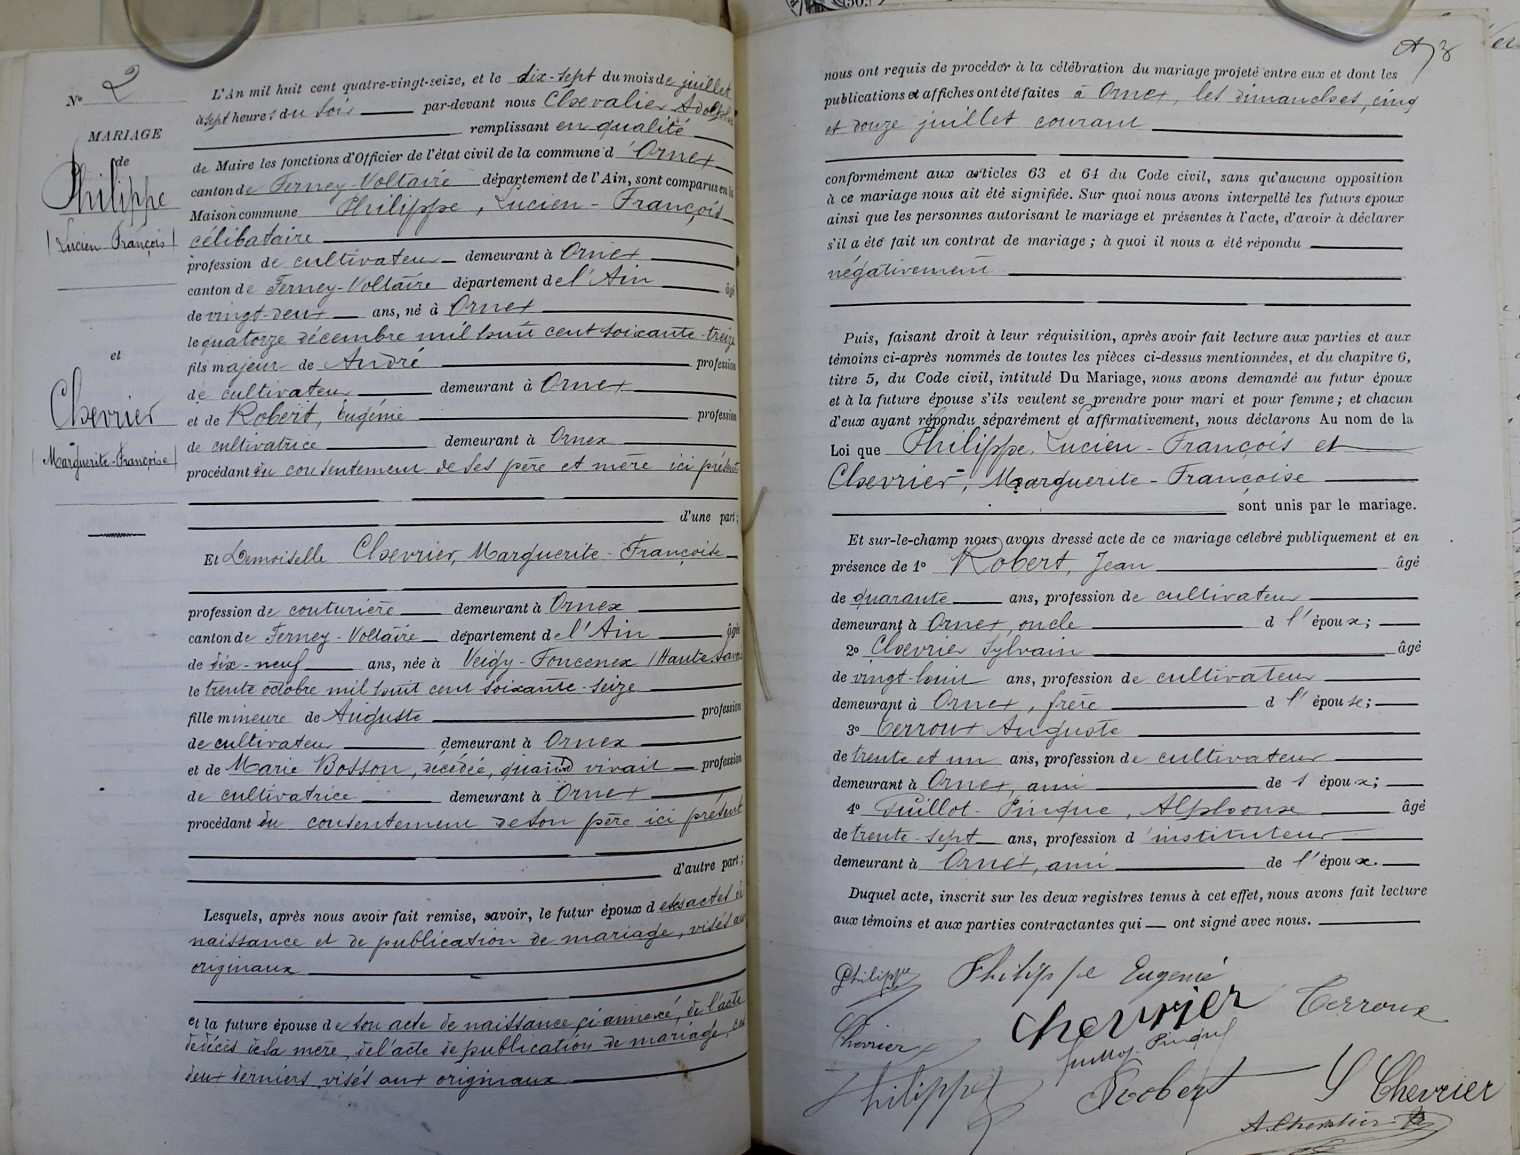 N° 2
MARIAGE
de
Philippe
(Lucien-François)
et
Chevrier
(Marguerite-Françoise)
L'An mil huit cent quatre-vingt-seize, et le dix-sept du mois de juillet
à sept heures du soir par-devant nous Chevalier Adolphe
remplissant en qualité
de Maire les fonctions d'Officier de l'état civil de la commune d'Ornex
canton de Ferney-Voltaire département de l'Ain, sont comparus en la
Maison commune Philippe, Lucien-François
célibataire
profession de cultivateur demeurant à Ornex
canton de Ferney-Voltaire département de l'Ain âgé
de vingt-deux ans, né à Ornex
le quatorze décembre mil huit cent soixante-treize
fils majeur de André profession
de cultivateur demeurant à Ornex
et de Robert, Eugénie profession
de cultivatrice demeurant à Ornex
procédant du consentement de ses père et mère ici présents
d'une part;
Et Demoiselle Chevrier, Marguerite-Françoise
profession de couturière demeurant à Ornex
canton de Ferney-Voltaire département de l'Ain âgée
de dix-neuf ans, née à Veigy-Foncenex (Haute Savoie
le trente octobre mil huit cent soixante-seize
fille mineure de Auguste profession
de cultivateur demeurant à Ornex
et de Marie Bosson, décédée, quand vivait profession
de cultivatrice demeurant à Ornex
procédant du consentement de son père ici présent
d'autre part;
Lesquels, après nous avoir fait remise, savoir, le futur époux d es actes de
naissance et de publication de mariage, visés aux
originaux
et la future épouse de son acte de naissance ci annexé, de l'acte
de décès de sa mère, de l'acte de publication de mariage, ces
deux derniers visés aux originaux
nous ont requis de procéder à la célébration du mariage projeté entre eux et dont les
publications et affiches ont été faites à Ornex, les dimanches, cinq
et douze juillet courant
conformément aux articles 63 et 64 du Code civil, sans qu'aucune opposition
à ce mariage nous ait été signifiée. Sur quoi nous avons interpellé les futurs époux
ainsi que les personnes autorisant le mariage et présentes à l'acte, d'avoir à déclarer
s'il a été fait un contrat de mariage; à quoi il nous a été répondu
négativement
Puis, faisant droit à leur réquisition, après avoir fait lecture aux parties et aux
témoins ci-après nommés de toutes les pièces ci-dessus mentionnées, et du chapitre 6,
titre 5, du Code civil, intitulé Du Mariage, nous avons demandé au futur époux
et à la future épouse s'ils veulent se prendre pour mari et pour femme; et chacun
d'eux ayant répondu séparément et affirmativement, nous déclarons Au nom de la
Loi que Philippe, Lucien-François et
Chevrier, Marguerite-Françoise
sont unis par le mariage.
Et sur-le-champ nous avons dressé acte de ce mariage célébré publiquement et en
présence de 1° Robert, Jean âgé
de quarante ans, profession de cultivateur
demeurant à Ornex, oncle d l'époux;
2° Chevrier Sylvain âgé
de vingt-huit ans, profession de cultivateur
demeurant à Ornex, frère d l'épouse;
3° Terroux Auguste
de trente et un ans, profession de cultivateur
demeurant à Ornex, ami de l époux;
4° Guillot-Pingue, Alphonse âgé
de trente-sept ans, profession d'instituteur
demeurant à Ornex, ami de l'époux.
Duquel acte, inscrit sur les deux registres tenus à cet effet, nous avons fait lecture
aux témoins et aux parties contractantes qui ont signé avec nous.
Philippe Philippe Eugenie
Chevrier Terroux
Chevrier Guillot-Pingue
Philippe Robert S Chevrier
A. Chevalier